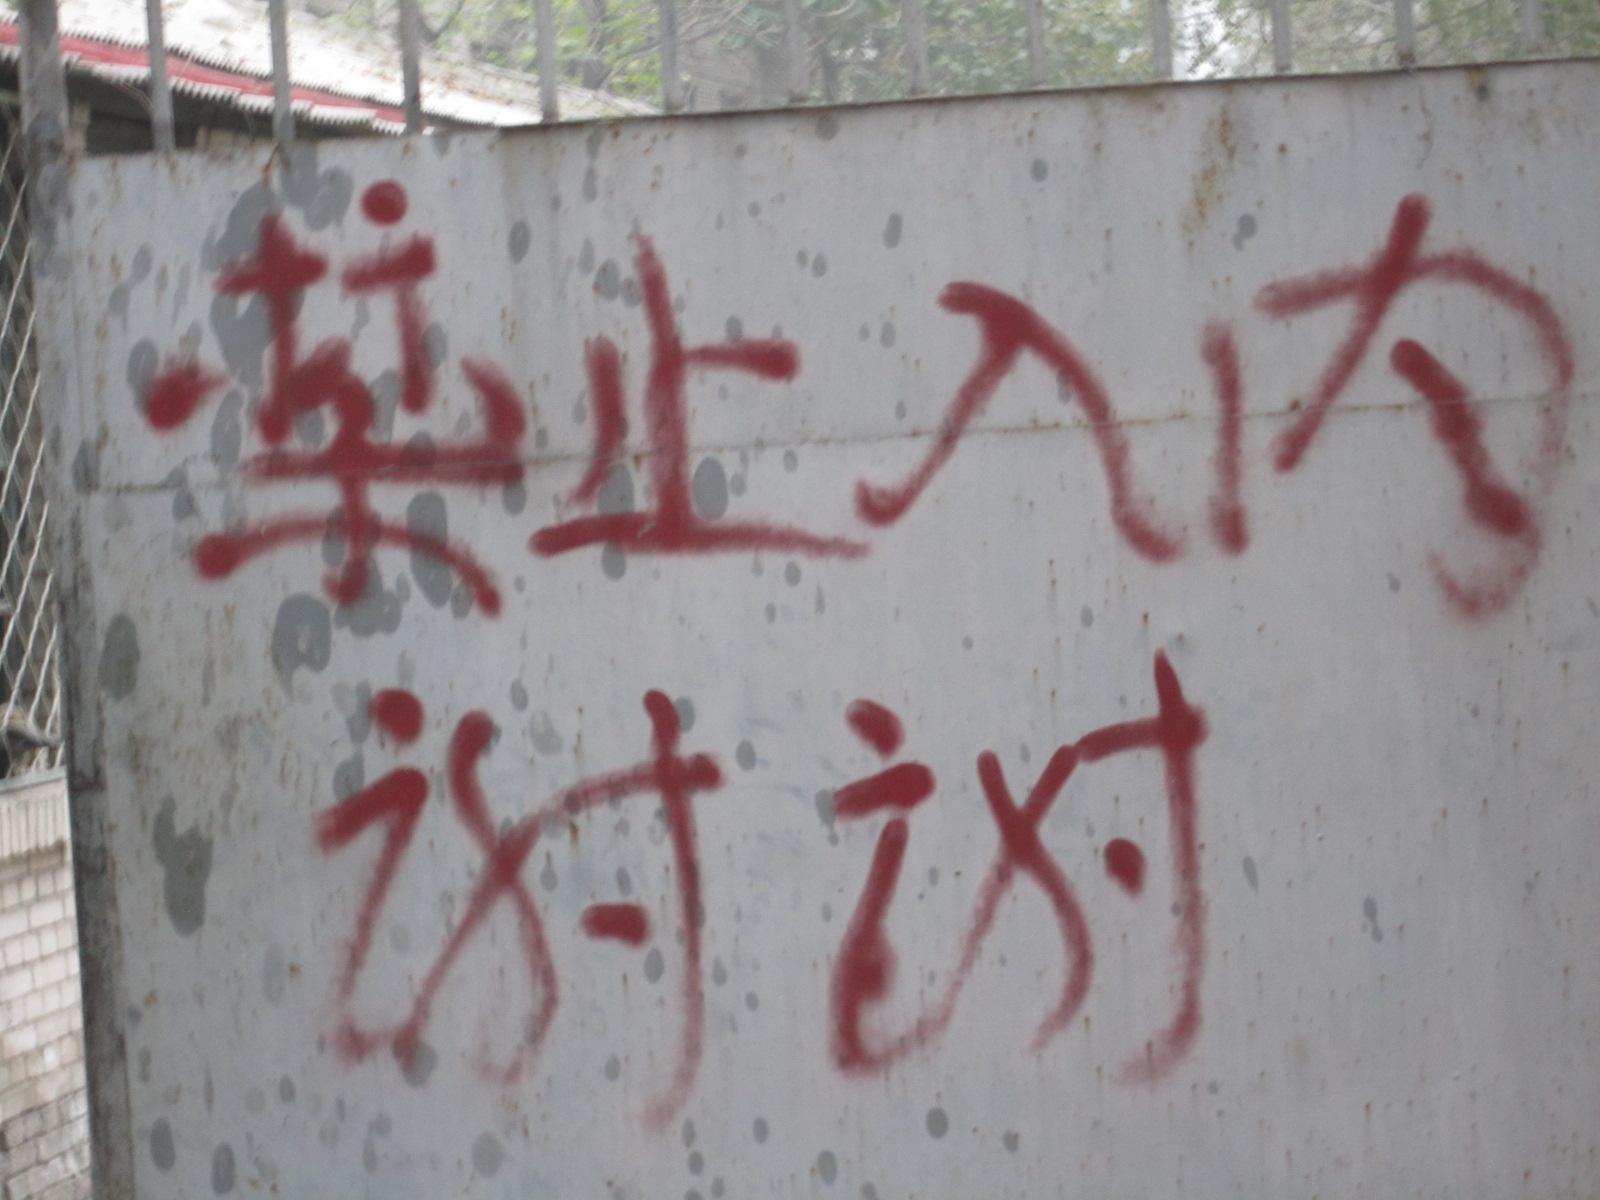 禁止入内
谢谢